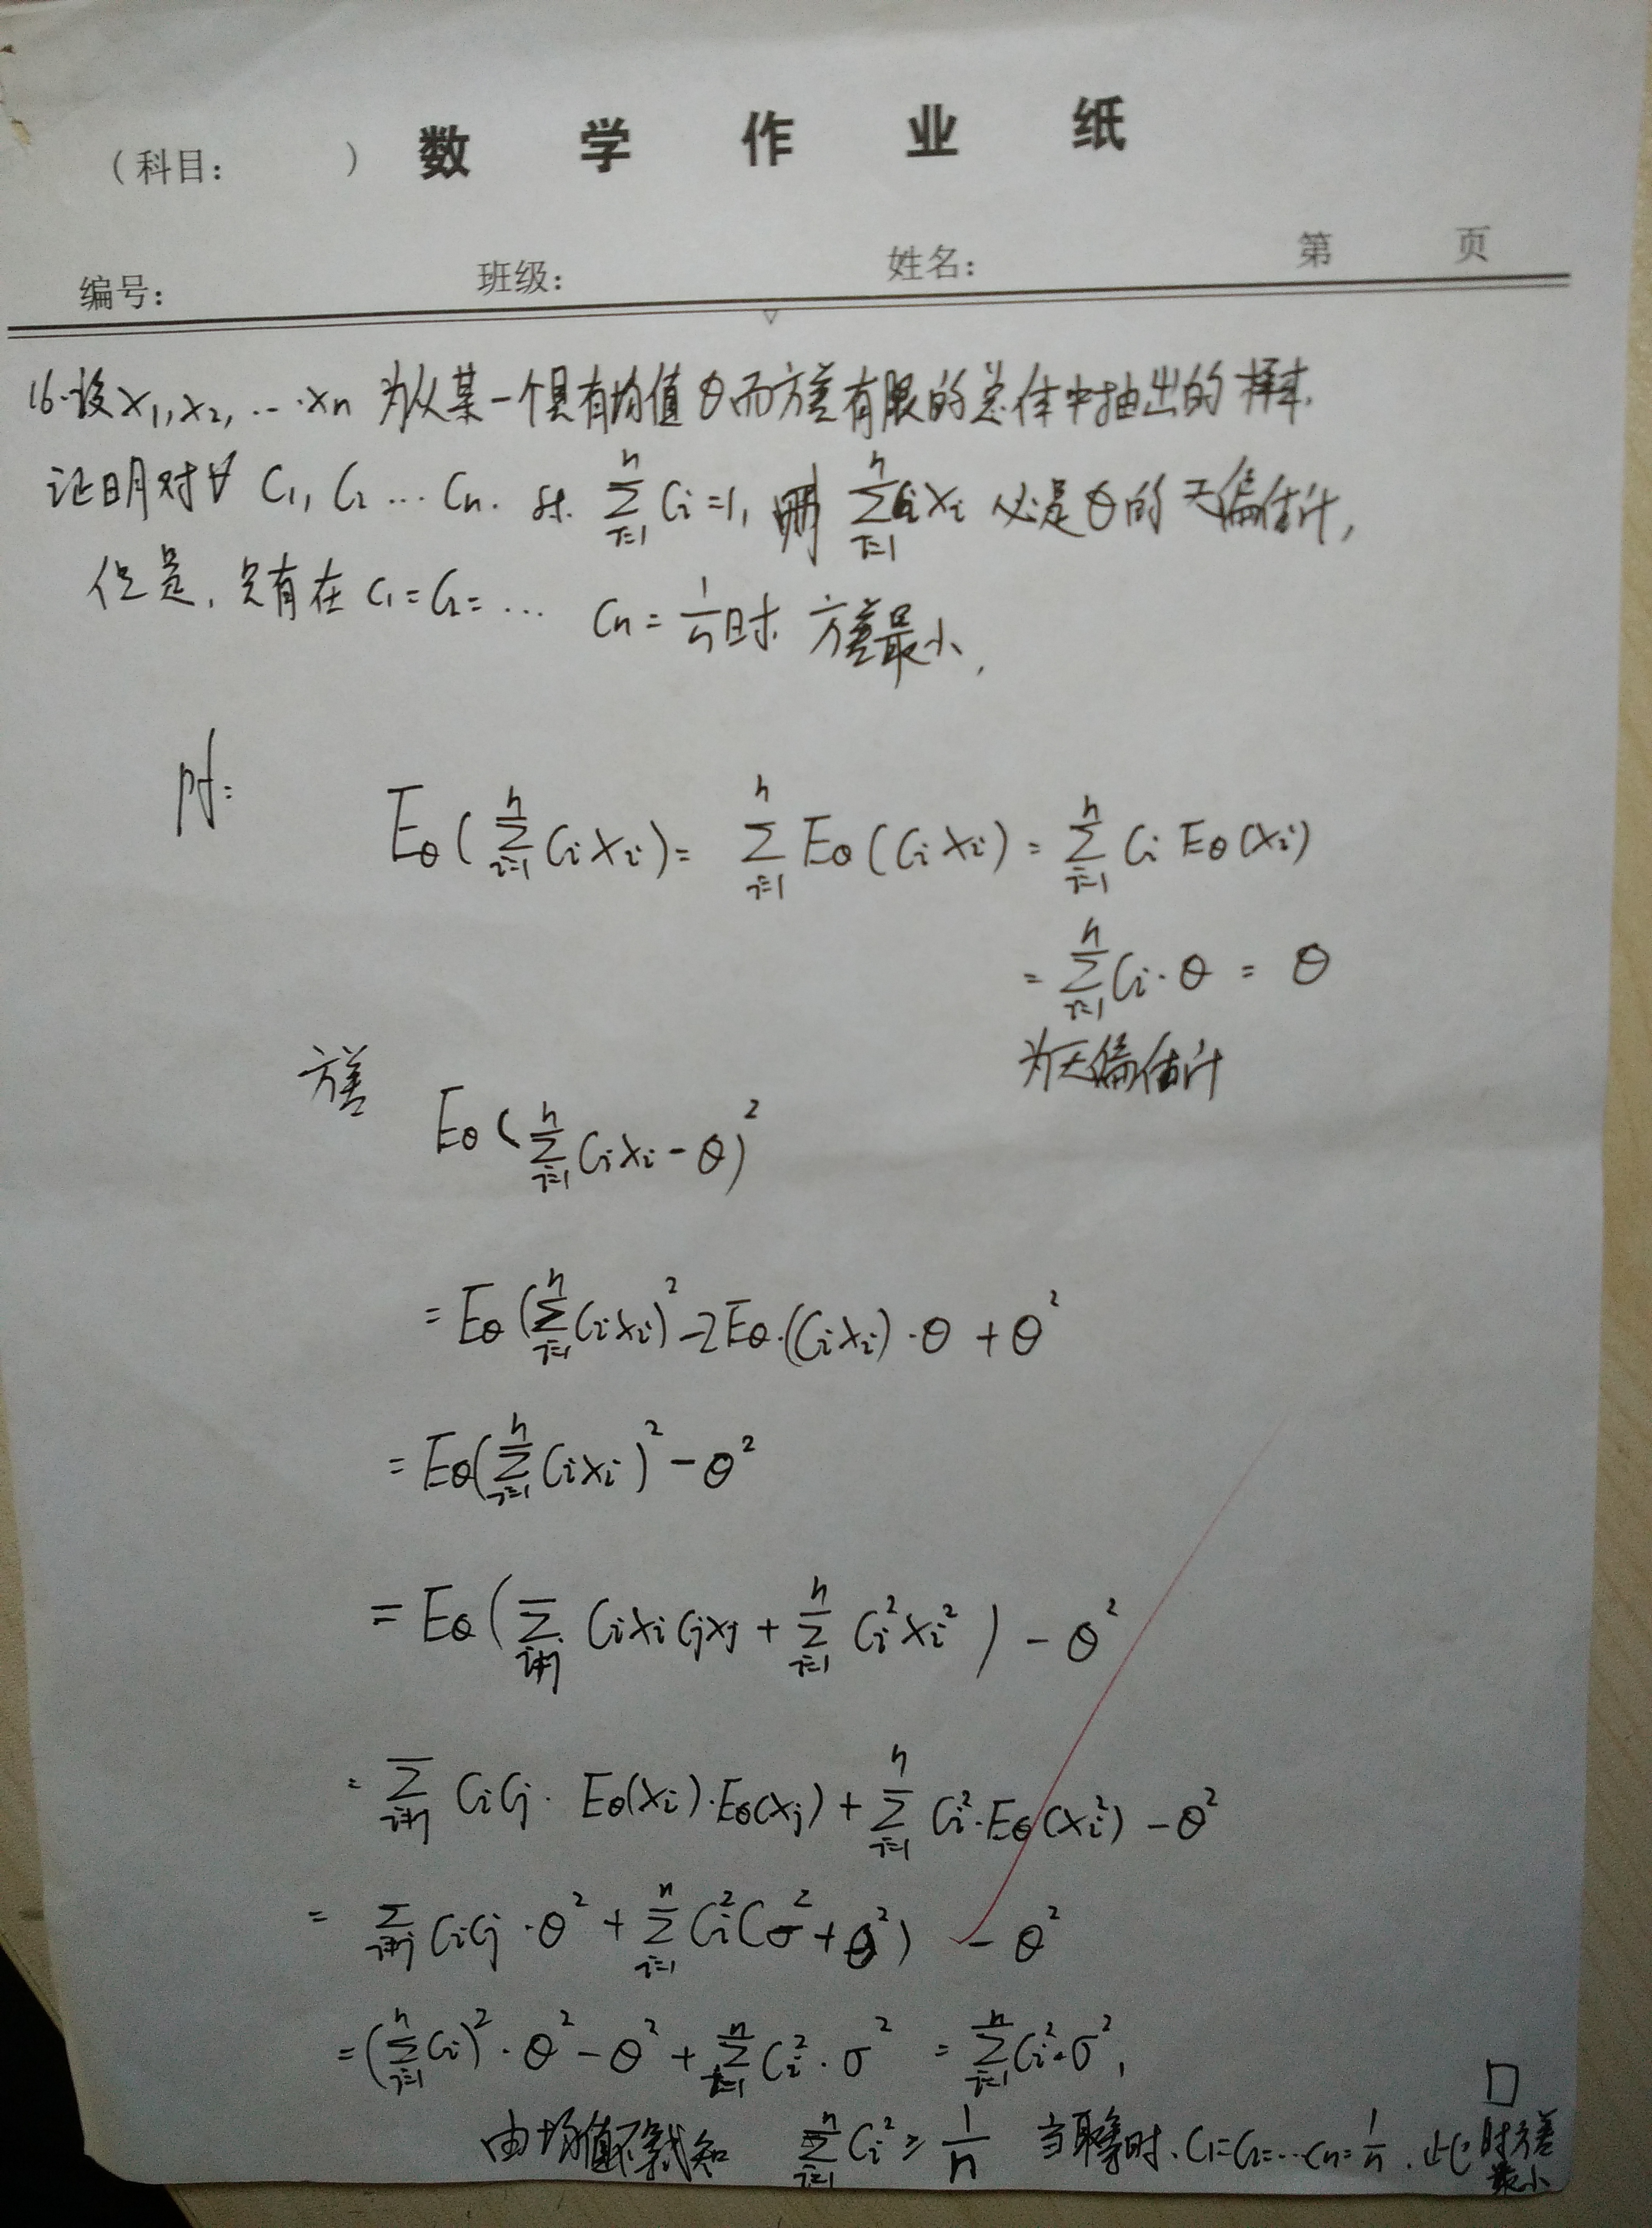 （科目： ） 数学作业纸
编号： 班级： 姓名： 第 页
16.设x₁,x₂,…xn 为从某一个具有均值θ而方差有限的总体中抽出的样本.
证明对∀ C₁, C₂ … Cn. st. \sum_{i=1}^{n} Ci=1, 则 \sum_{i=1}^{n} Cixi 必是θ的无偏估计,
但是, 只有在 C₁=C₂=… Cn=\frac{1}{n}时 方差最小.
Pf:
Eθ(\sum_{i=1}^{n} CiXi)= \sum_{i=1}^{n} Eθ(CiXi) = \sum_{i=1}^{n} Ci Eθ(Xi)
= \sum_{i=1}^{n} Ci·θ = θ
为无偏估计
方差
Eθ(\sum_{i=1}^{n} CiXi-θ)²
= Eθ(\sum_{i=1}^{n} CiXi)² -2Eθ·(CiXi)·θ + θ²
= Eθ(\sum_{i=1}^{n} CiXi)² - θ²
= Eθ(\sum_{i≠j} CiXiCjXj + \sum_{i=1}^{n} Ci²Xi²) - θ²
= \sum_{i≠j} CiCj· Eθ(Xi)·Eθ(Xj) + \sum_{i=1}^{n} Ci²·Eθ(Xi²) - θ²
= \sum_{i≠j} CiCj·θ² + \sum_{i=1}^{n} Ci²(σ²+θ²) - θ²
= (\sum_{i=1}^{n} Ci)²·θ² - θ² + \sum_{i=1}^{n} Ci²·σ² = \sum_{i=1}^{n} Ci²·σ²,
由均值不等式知 \sum_{i=1}^{n} Ci² ≥ \frac{1}{n} 当取等时. C₁=C₂=…Cn=\frac{1}{n}. 此时方差最小 □